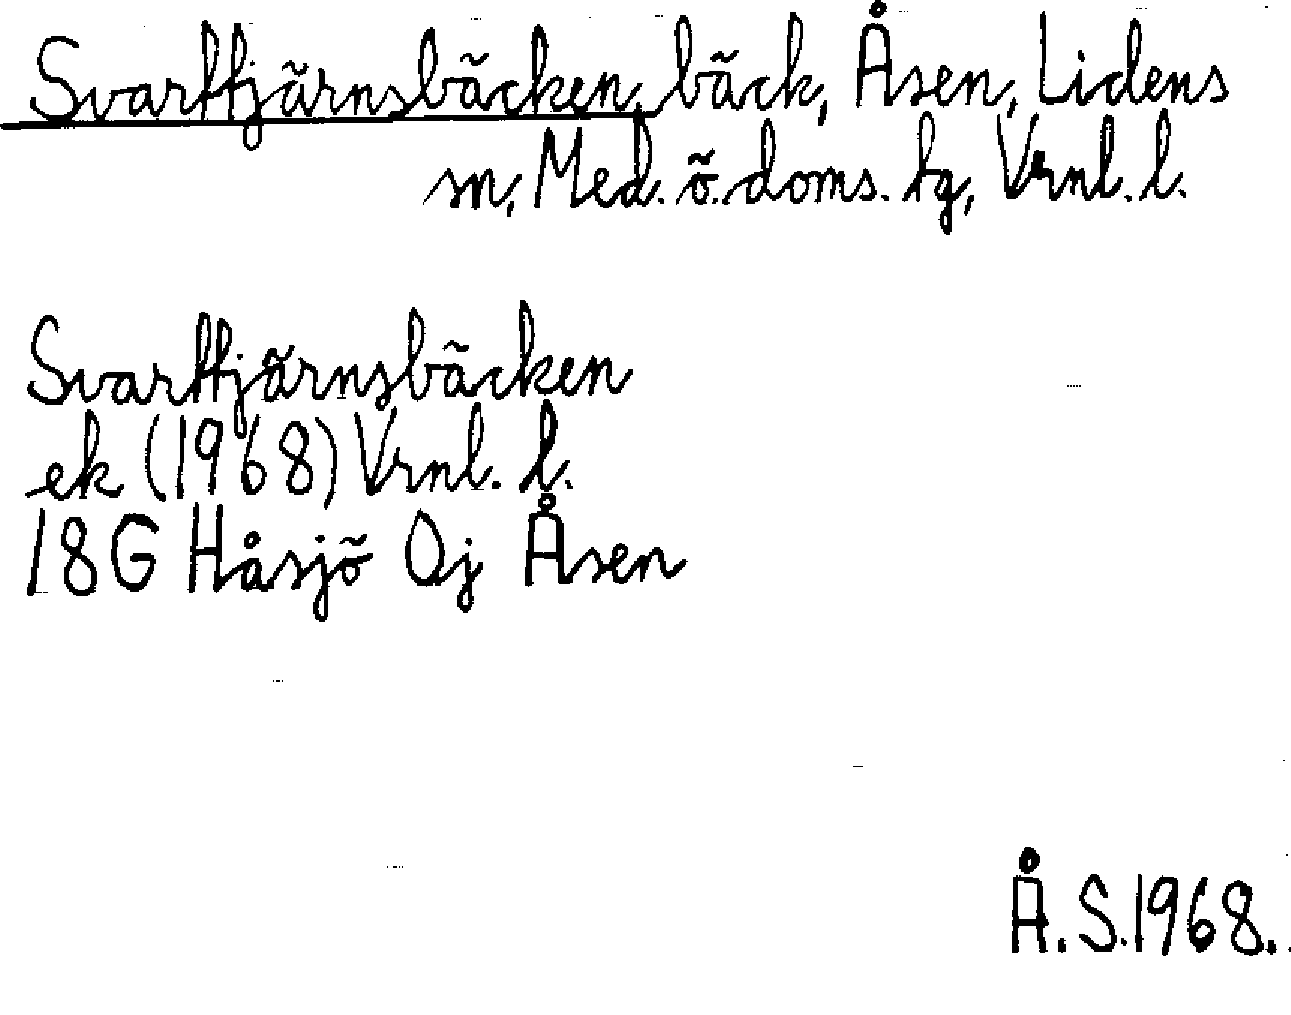 Svarttjärnsbäcken, bäck, Åsen, Lidens
sn, Med. ö. doms. tg, Vrnl. l.
Svarttjärnsbäcken
ek (1968) Vrnl. l.
18G Håsjö 0j Åsen
Å.S.1968.